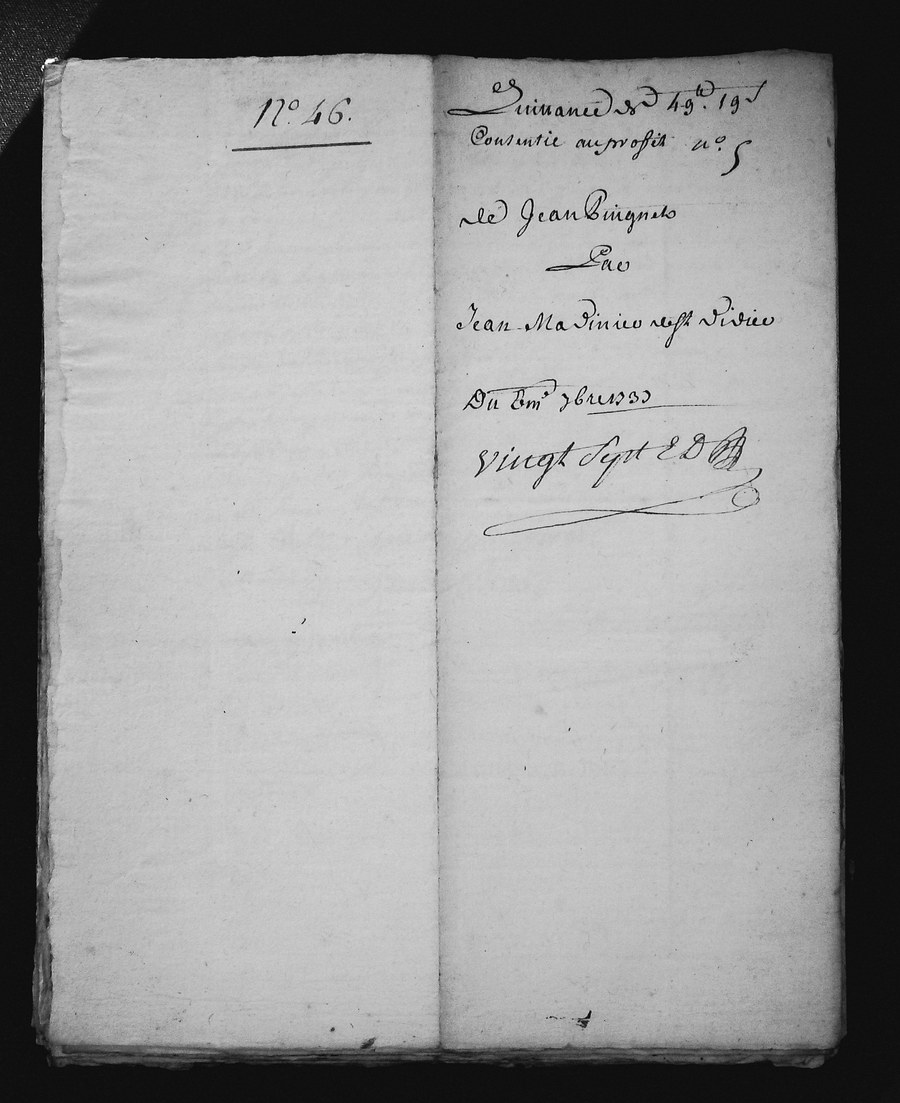 N.º 46.
Quittance de 49.tt 19.s
Consentie au proffit n.º 5
de Jean Pingnet
Par
Jean Madinier de st Didier
Du 8.me 7bre 1733
Vingt Sept E D